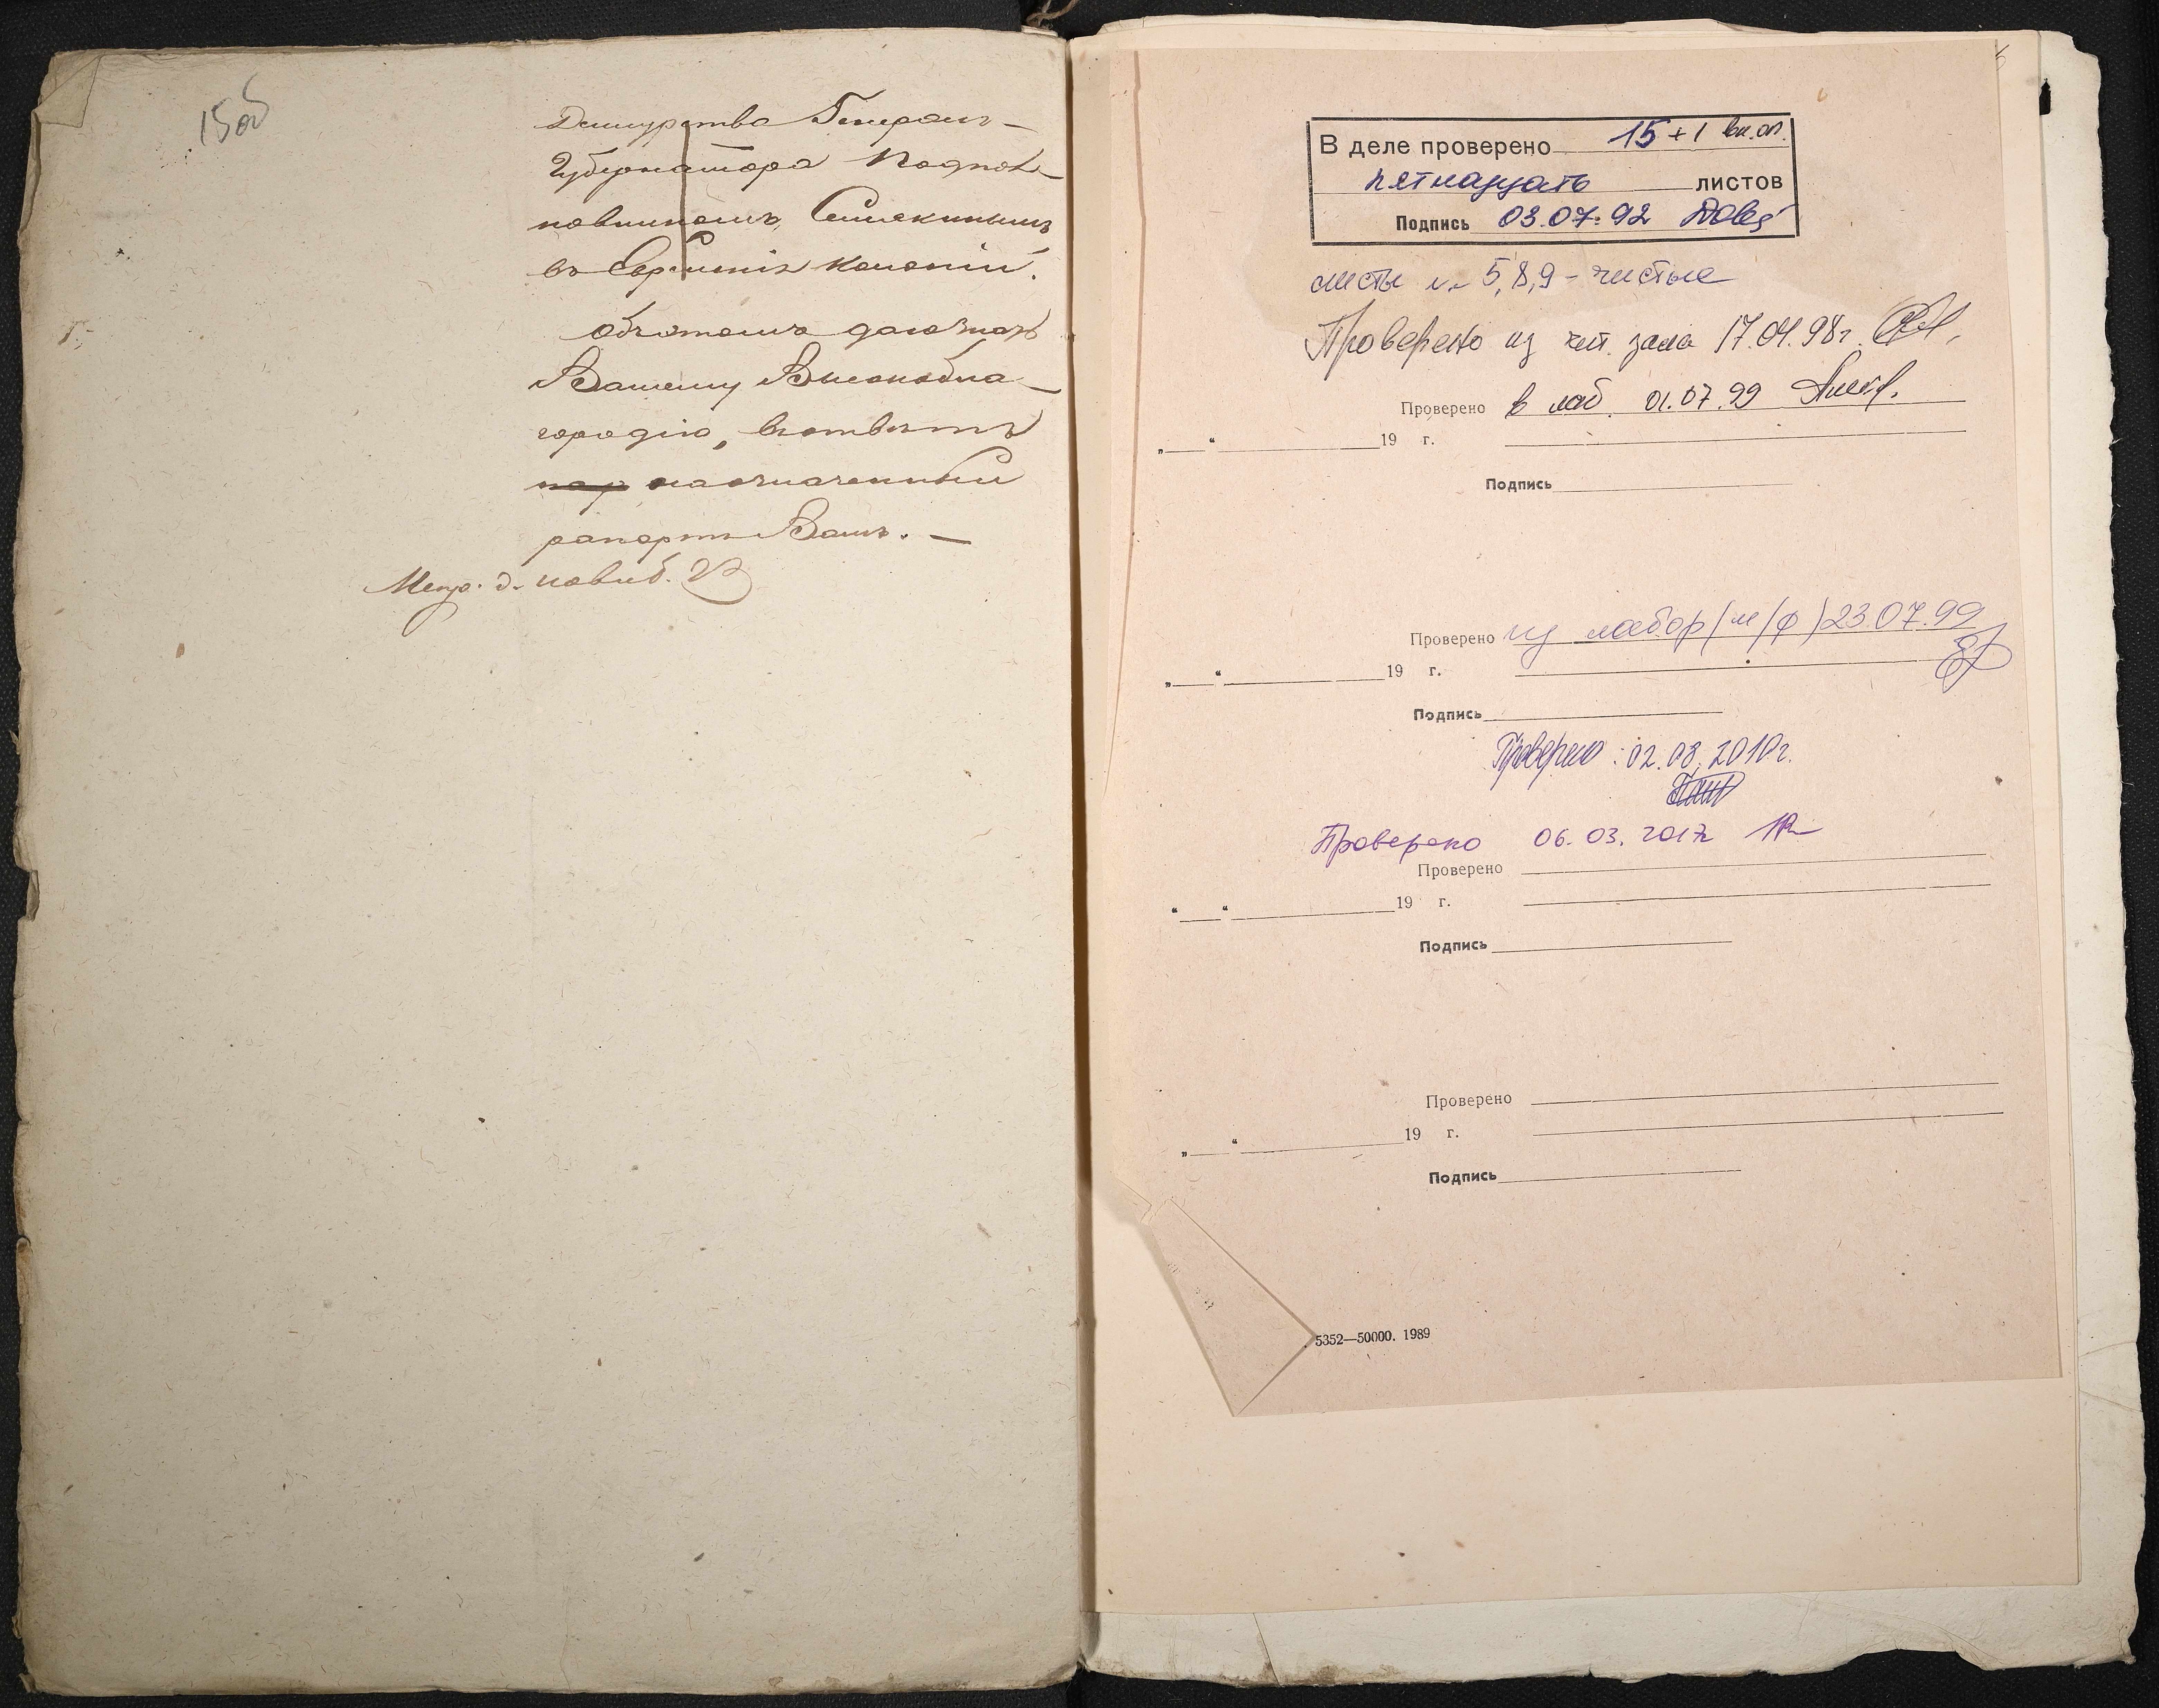 15 об
Дежурства Генералъ-
Губернатора Подпол-
ковникомъ, Семякинымъ
въ Еврейскія колоніи.
объэтомъ даю знать
Вашему Высокобла-
городію, въотвѣтъ
наозначенный
рапортъ Вашъ. —
В деле проверено 15 + 1 вн.оп.
пятнадцать листов
Подпись 03.07.92
листы 5, 8, 9 - чистые
Проверено из чит. зала 17.04.98г.
Проверено в лаб. 01.07.99
„ “ 19 г.
Подпись
Проверено из лабор (м/ф) 23.07.99
„ “ 19 г.
Подпись
Проверено: 02.08.2010г.
Проверено 06.03.2017г
Проверено
“ “ 19 г.
Подпись
Проверено
„ “ 19 г.
Подпись
5352—50000. 1989